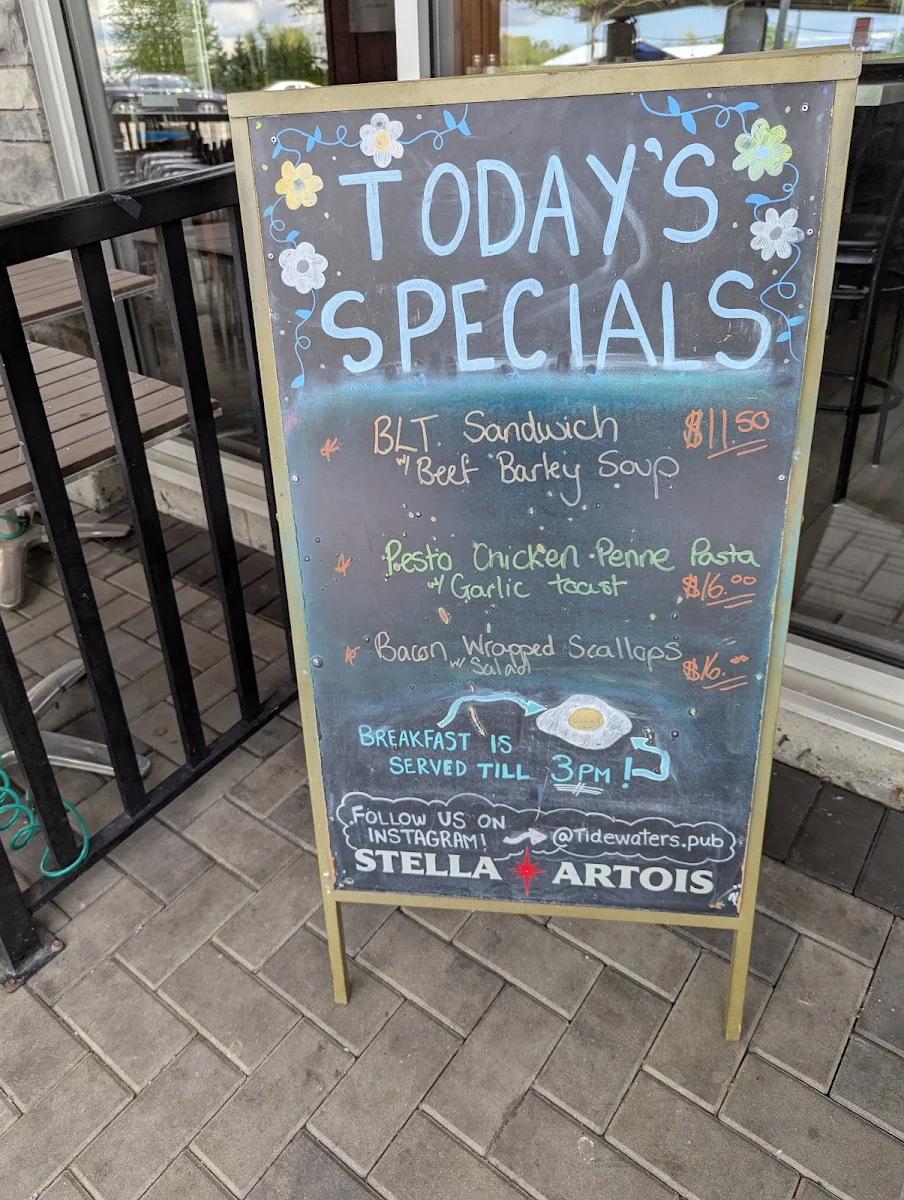 TODAY'S
SPECIALS
BLT Sandwich $11.50
w/ Beef Barley Soup
Pesto Chicken Penne Pasta
w/ Garlic toast $16.00
Bacon Wrapped Scallops
w/ Salad $16.00
BREAKFAST IS
SERVED TILL 3PM!
FOLLOW US ON
INSTAGRAM! @Tidewaters.pub
STELLA ARTOIS